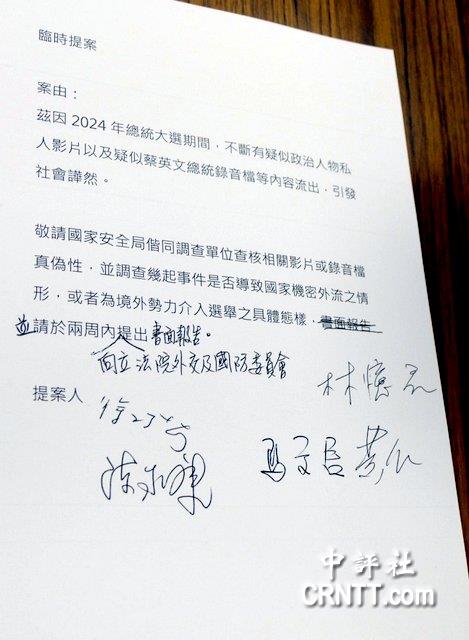 臨時提案
案由：
茲因 2024 年總統大選期間，不斷有疑似政治人物私
人影片以及疑似蔡英文總統錄音檔等內容流出，引發
社會譁然。
敬請國家安全局偕同調查單位查核相關影片或錄音檔
真偽性，並調查幾起事件是否導致國家機密外流之情
形，或者為境外勢力介入選舉之具體態樣，書面報告
並請於兩周內提出書面報告。
向立法院外交及國防委員會
林憶君
提案人
馬文君
中評社
CRNTT.com